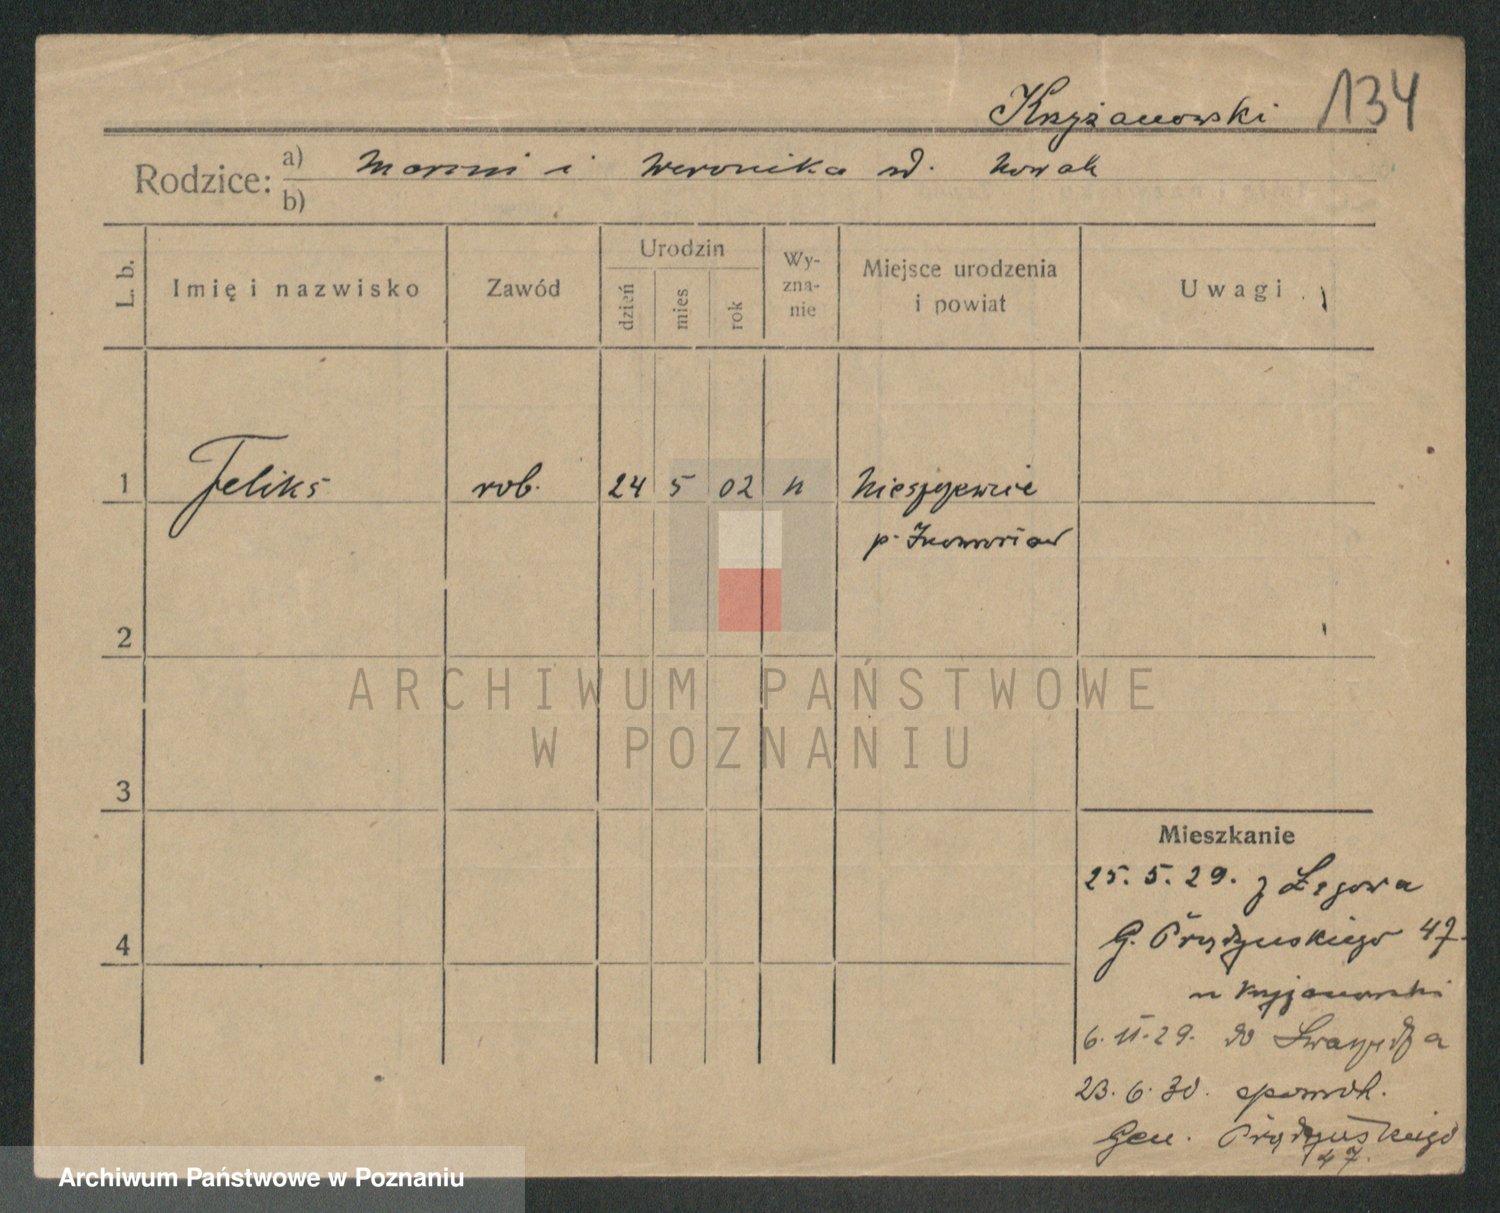 Krzyżanowski 134
Rodzice: a) Marcin i Weronika zd. Nowak
b)
L. b.
Imię i nazwisko
Zawód
Urodzin
dzień
mies
rok
Wy-
zna-
nie
Miejsce urodzenia
i powiat
Uwagi
1 Feliks rob. 24 5 02
p. Inowrocław
2
3
4
Mieszkanie
25. 5. 29. z Łęgowa
G. Prądzyńskiego 47
u Krzyżanowski
6. 11. 29. do
23. 6. 30.
Gen. Prądzyńskiego
47.
ARCHIWUM PAŃSTWOWE
W POZNANIU
Archiwum Państwowe w Poznaniu